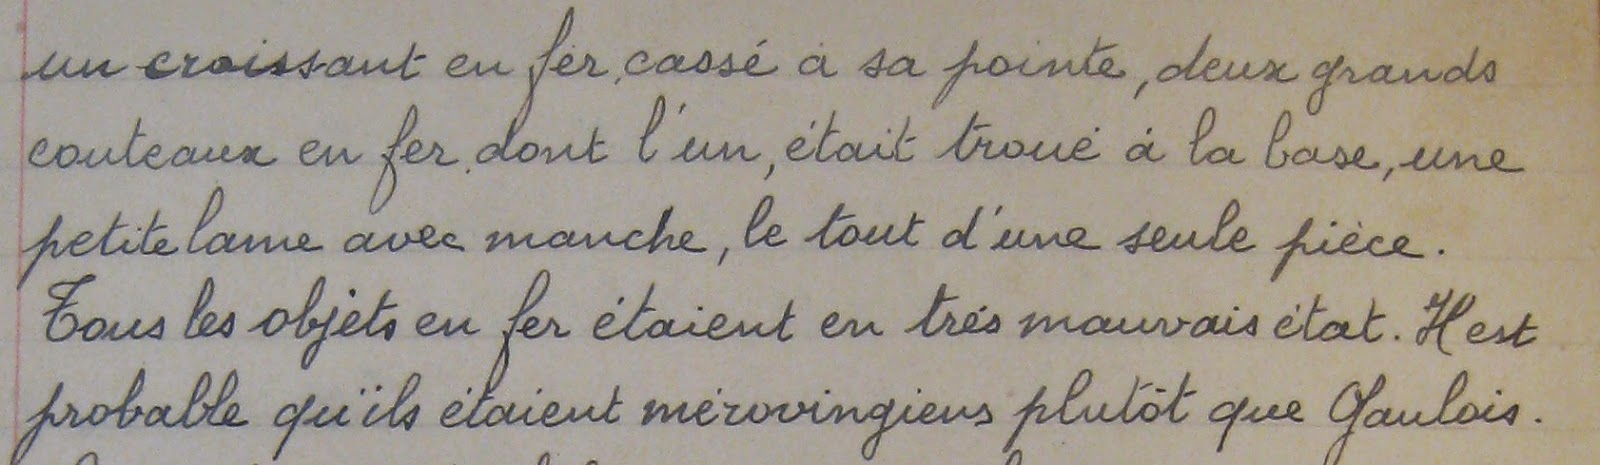 un croissant en fer, cassé à sa pointe, deux grands
couteaux en fer, dont l'un, était troué à la base, une
petite lame avec manche, le tout d'une seule pièce.
Tous les objets en fer étaient en trés mauvais état. Il est
probable qu'ils étaient mérovingiens plutôt que Gaulois.